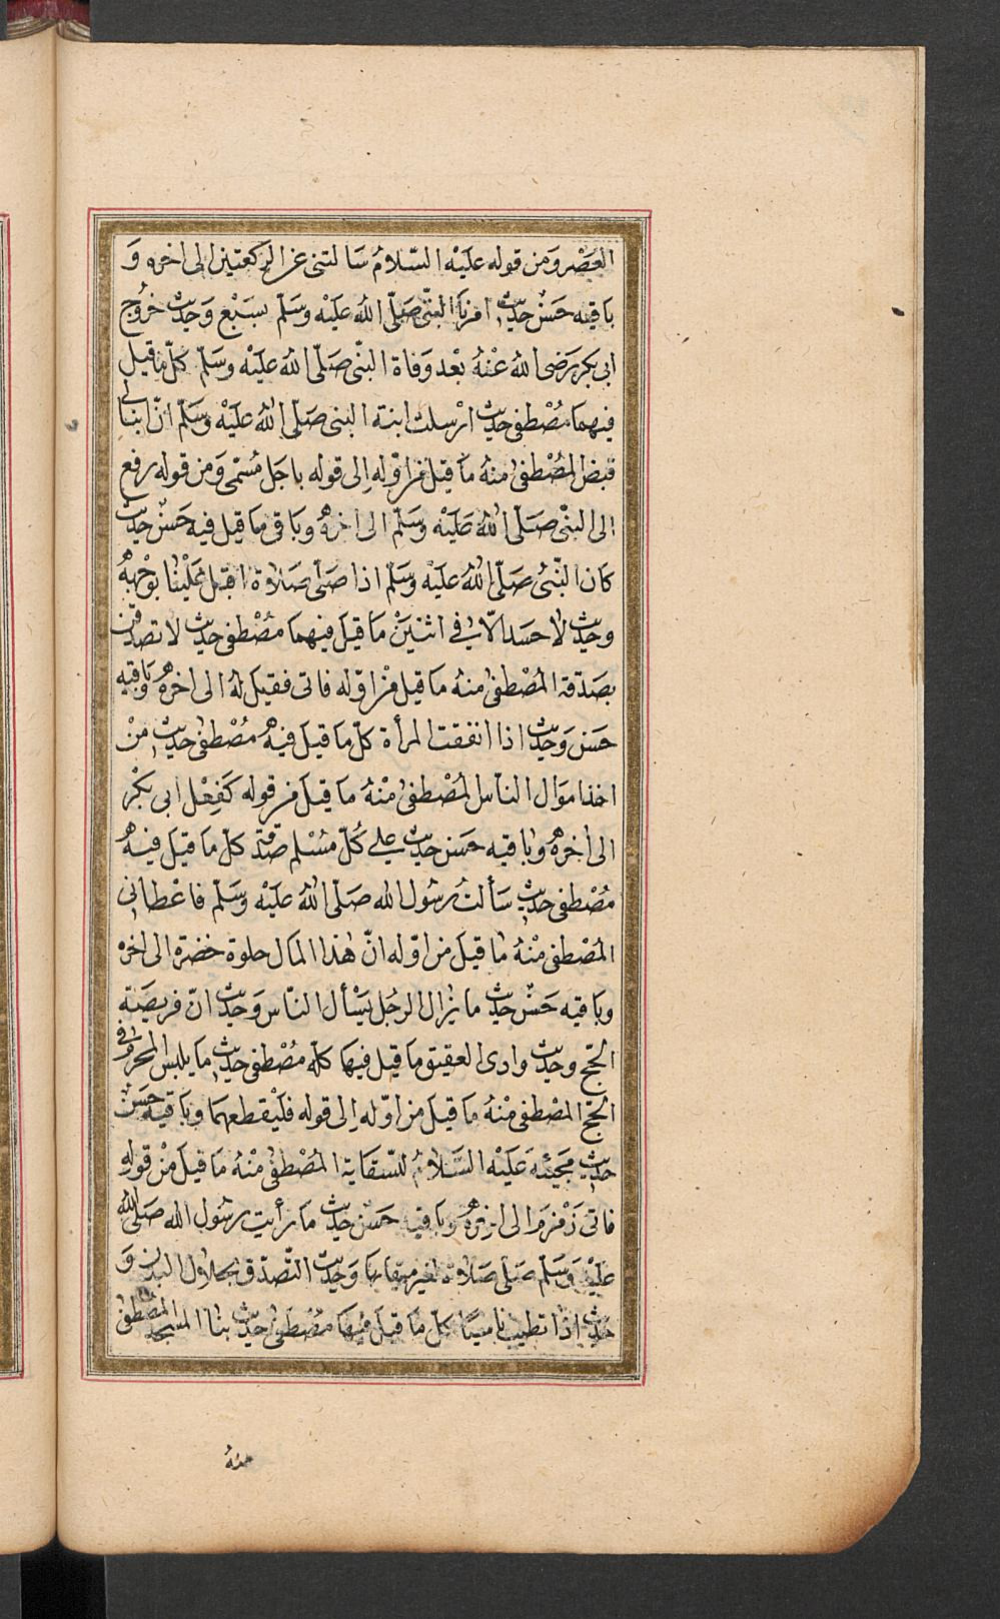 العَصْر وَمن قوله علَيْه السّلام سَا لتنى عن الركعتين الى اخره وَ
باقيه حَسَنٌ حديث امرنا النبىّ صَلّى اللهُ علَيْه وسَلّم بسَبْع وَحديث خرُوج
ابى بكر رَضى اللهُ عَنْهُ بعْد وَفاة النبّى صَلّى اللهُ علَيْه وسَلّم كلّ ما قيل
فيهما مُصْطفى حديث ارْسلت ابنة النبى صَلّى اللهُ علَيْه وسَلّم انّ ابنا لى
قبض المُصْطفىٰ منهُ ما قيل من اوّله إلى قوله باجَل مُسَمّى وَمن قوله رفع
الى النبّى صَلّى اللهُ علَيْه وسَلّم الى اخرهُ وباقى ما قيل فيه حَسَنٌ حديث
كان النّبىُ صَلّى اللهُ علَيْه وسَلّم اذا صَلّى صَلاوة اقبَل عَلْينا بوَجْههُ
وحديث لاحسَد الّا فى اثنيَنْ مَا قيَل فيهما مصْطفى حديث لا تصدّقن
بصَدَقة المُصْطفىٰ منهُ مَا قيل منْ اوّله فاتى فقيَل لهُ الى اخرهُ وَباقيه
حَسَن وَحديث اذا انفقت المرأة كلّ ما قيَل فيهُ مُصْطفىٰ حديث منْ
اخذ امَوَال النّاس المُصْطفىٰ منْهُ مَا قيَل من قوله كَفِعْل ابى بكْر
الى اخرهُ وبَاقيه حَسَن حديث على كُلّ مسْلم صَدَقة كلّ مَا قيَل فيهُ
مُصْطفى حديث سَألتُ رسُول الله صَلّى اللهُ علَيْه وَسَلّم فاعْطانى
المُصْطفى منْهُ مَا قيَل من اوّله انّ هٰذا المَال حلوة خضَرة الى اخره
وبَاقيه حَسَنٌ حديث ما يزال الرجُل يَسْأل النّاس وَحديث انّ فريضَة
الحّج وحديث وادى العقيق ما قيل فيهَا كلّه مُصْطفى حديث ما يلبس المحرمُ فى
الحّج المصْطفى منْهُ مَا قيَل من اوّله إلى قوله فليْقطعهمَا وبَاقيه حَسَنٌ
حديث مَجيئهَ علَيْه السَّلامُ للسّقاية المُصْطفىٰ منْهُ مَا قيلَ منْ قوله
فاتى زَمْزمَ الى اخرهُ وبَاقيه حَسَنٌ حديث مَا رأيت رسُول الله صَلّى اللهُ
علَيْه وَسَلّم صَلّى صَلاوة لغير ميقاتها وَحديث التّصدّق بجلاول البدن وَ
حديث اذا تطيب ناسيًا كلّ مَا قيلَ فيهَا مصْطفىٰ حديث بنا المسجد المصْطفىٰ
منهُ